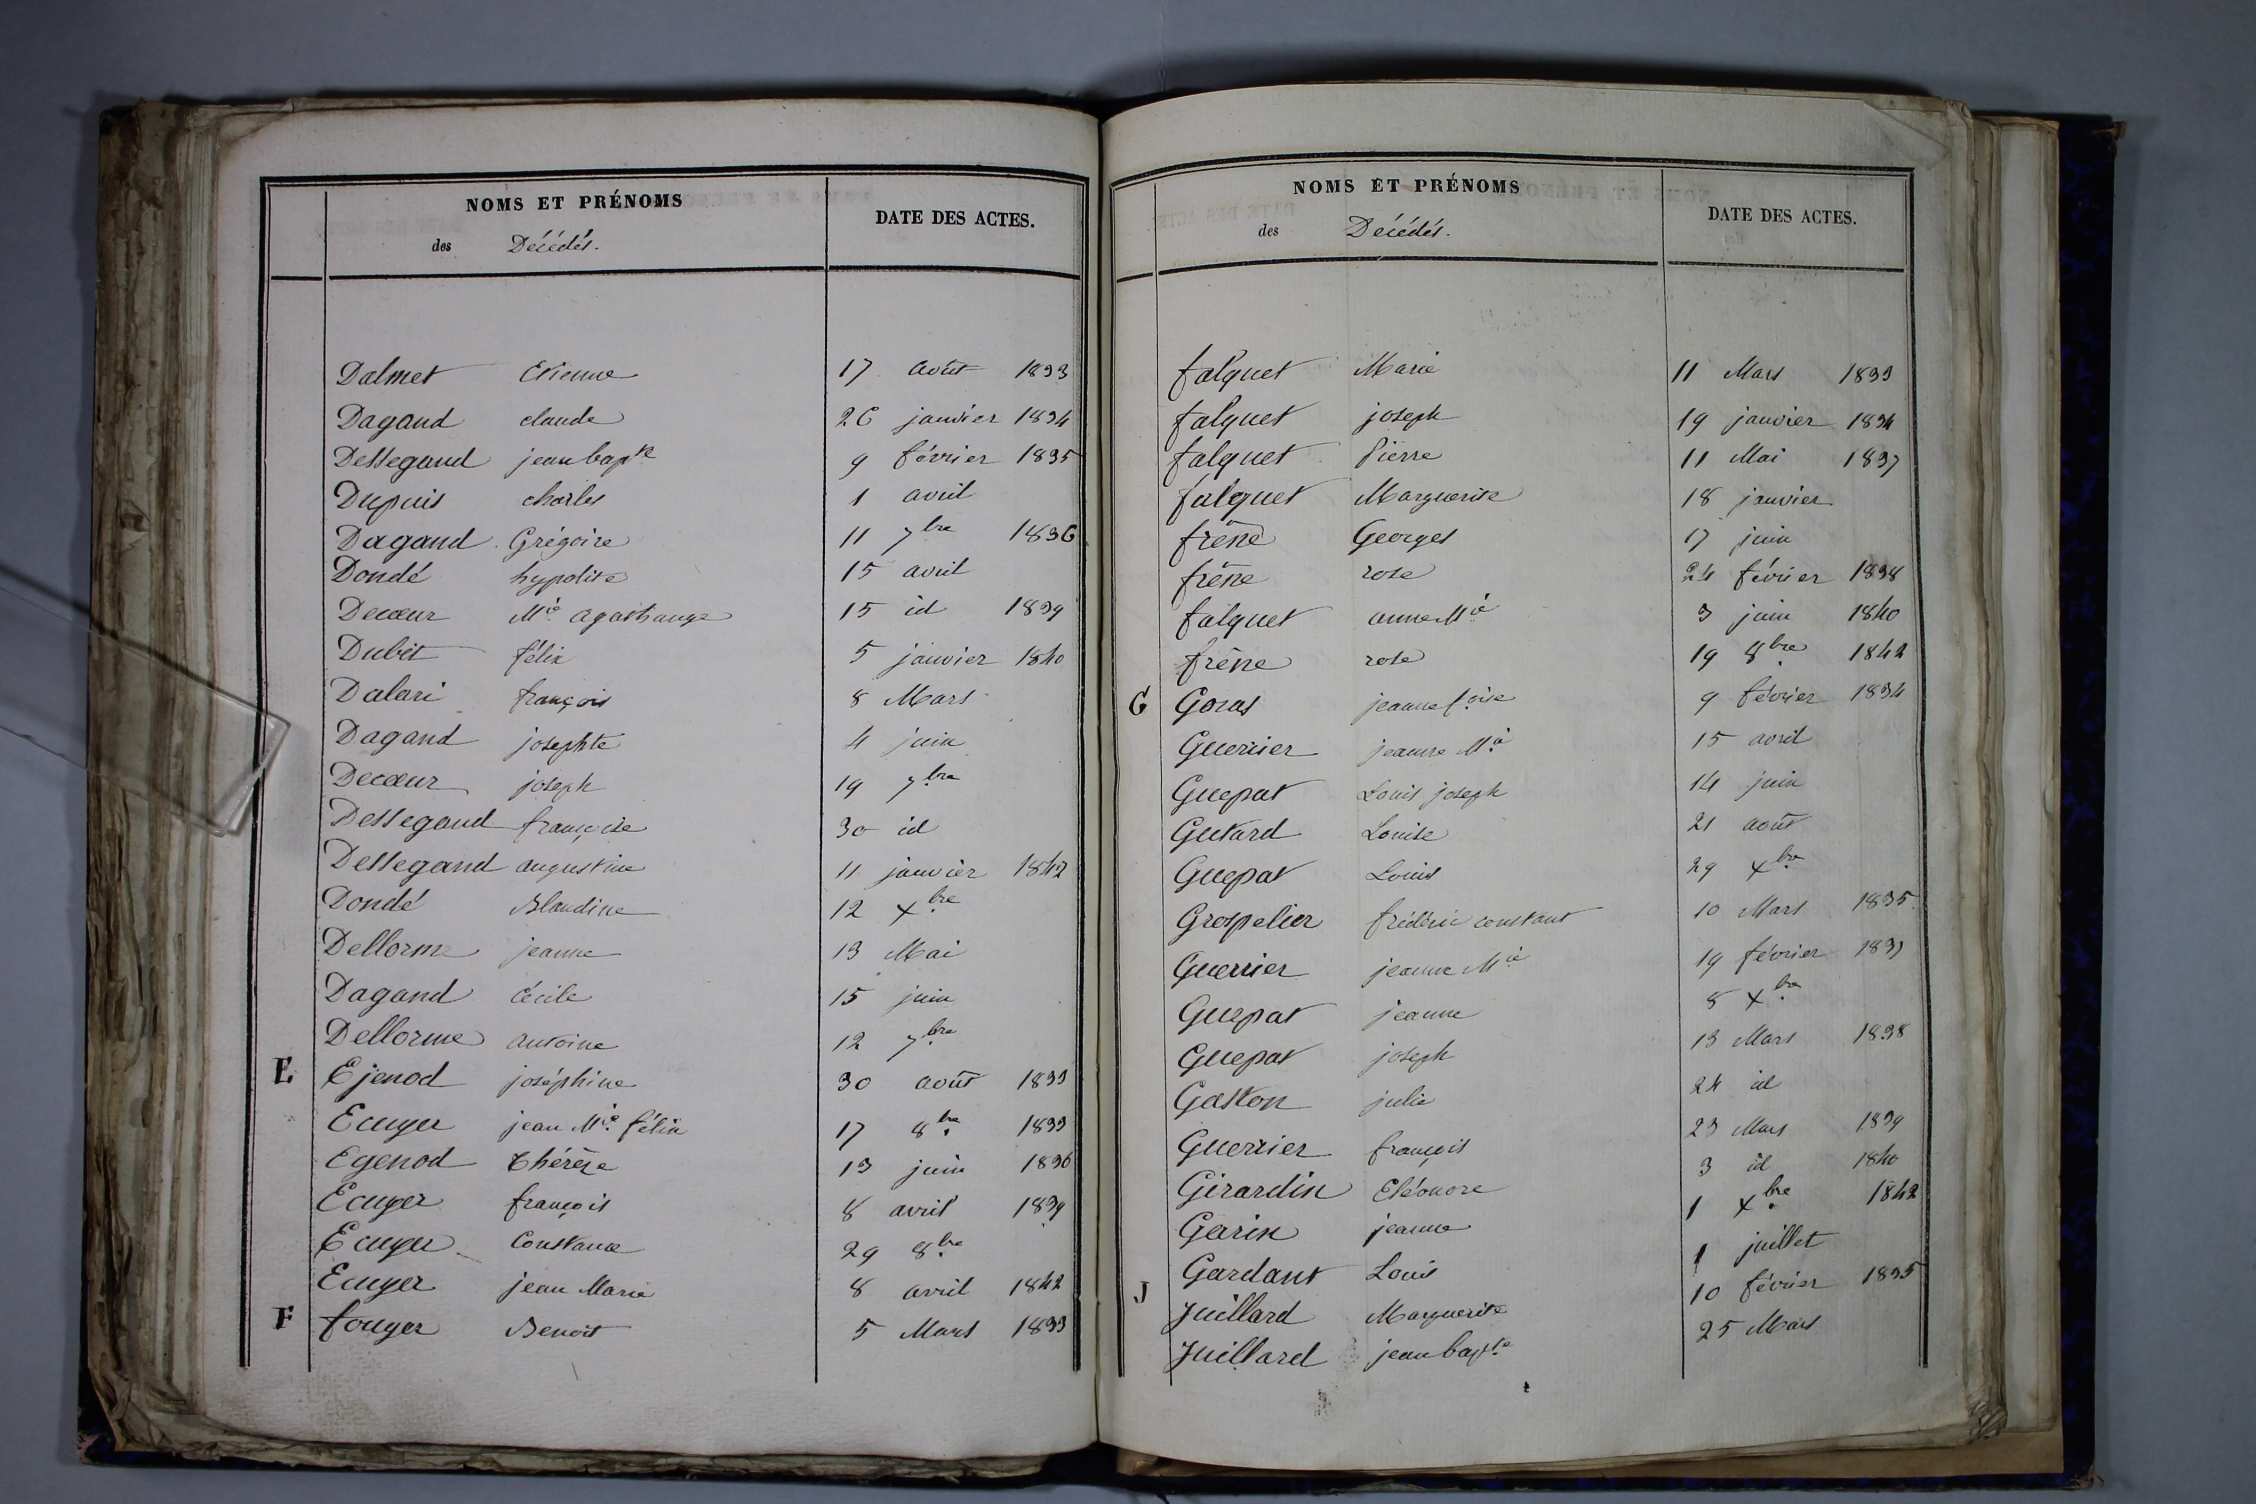 NOMS ET PRÉNOMS
des Décédés.
DATE DES ACTES.
Dalmet Etienne 17 août 1833
Dagand claude 26 janvier 1834
Dessegand jean bapte 9 février 1835
Dupuis charles 1 avril
Dagand Grégoire 11 7bre 1836
Dondé hypolite 15 avril
Decœur Mie agathange 15 id 1839
Dubit félix 5 janvier 1840
Dalari françois 8 Mars
Dagand josephte 4 juin
Decœur joseph 19 7bre
Dessegand françoise 30 id
Dessegand augustine 11 janvier 1842
Dondé Blandine 12 Xbre
Dellorme jeanne 13 Mai
Dagand Cécile 15 juin
Dellorme antoine 12 7bre
E Ejenod joséphine 30 août 1833
Ecuyer jean Mie félix 17 8bre 1833
Egenod thérèze 13 juin 1836
Ecuyer françois 8 avril 1839
Ecuyer Constance 29 8bre
Ecuyer jean Marie 8 avril 1842
F fouger Benoit 5 Mars 1833
NOMS ET PRÉNOMS
des Décédés.
DATE DES ACTES.
falquet Marie 11 Mars 1833
falquet joseph 19 janvier 1834
falquet Pierre 11 Mai 1837
falquet Marguerite 18 janvier
frêne Georges 17 juin
frêne rose 24 février 1838
falquet anne Mie 3 juin 1840
frêne rose 19 8bre 1842
G Goras jeanne foise 9 février 1834
Guerrier jeanne Mie 15 avril
Guepat Louis joseph 14 juin
Gutard Louise 21 août
Guepat Louis 29 Xbre
Grospelier frédéric constant 10 Mars 1835
Guerrier jeanne Mie 19 février 1837
Guepat jeanne 8 Xbre
Guepat joseph 13 Mars 1838
Gaston julie 24 id
Guerrier françois 23 Mars 1839
Girardin Eléonore 3 id 1840
Garin jeanne 1 Xbre 1842
Gardant Louis 1 juillet
J Juillard Marguerite 10 février 1835
Juillard jean bapte 25 Mars